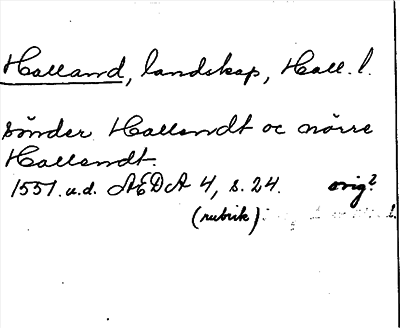 Halland, landskap, Hall. l.
sönder Hallandt oc nörre
Hallandt.
1551 u.d. AEDA 4, s. 24. orig?
(rubrik)